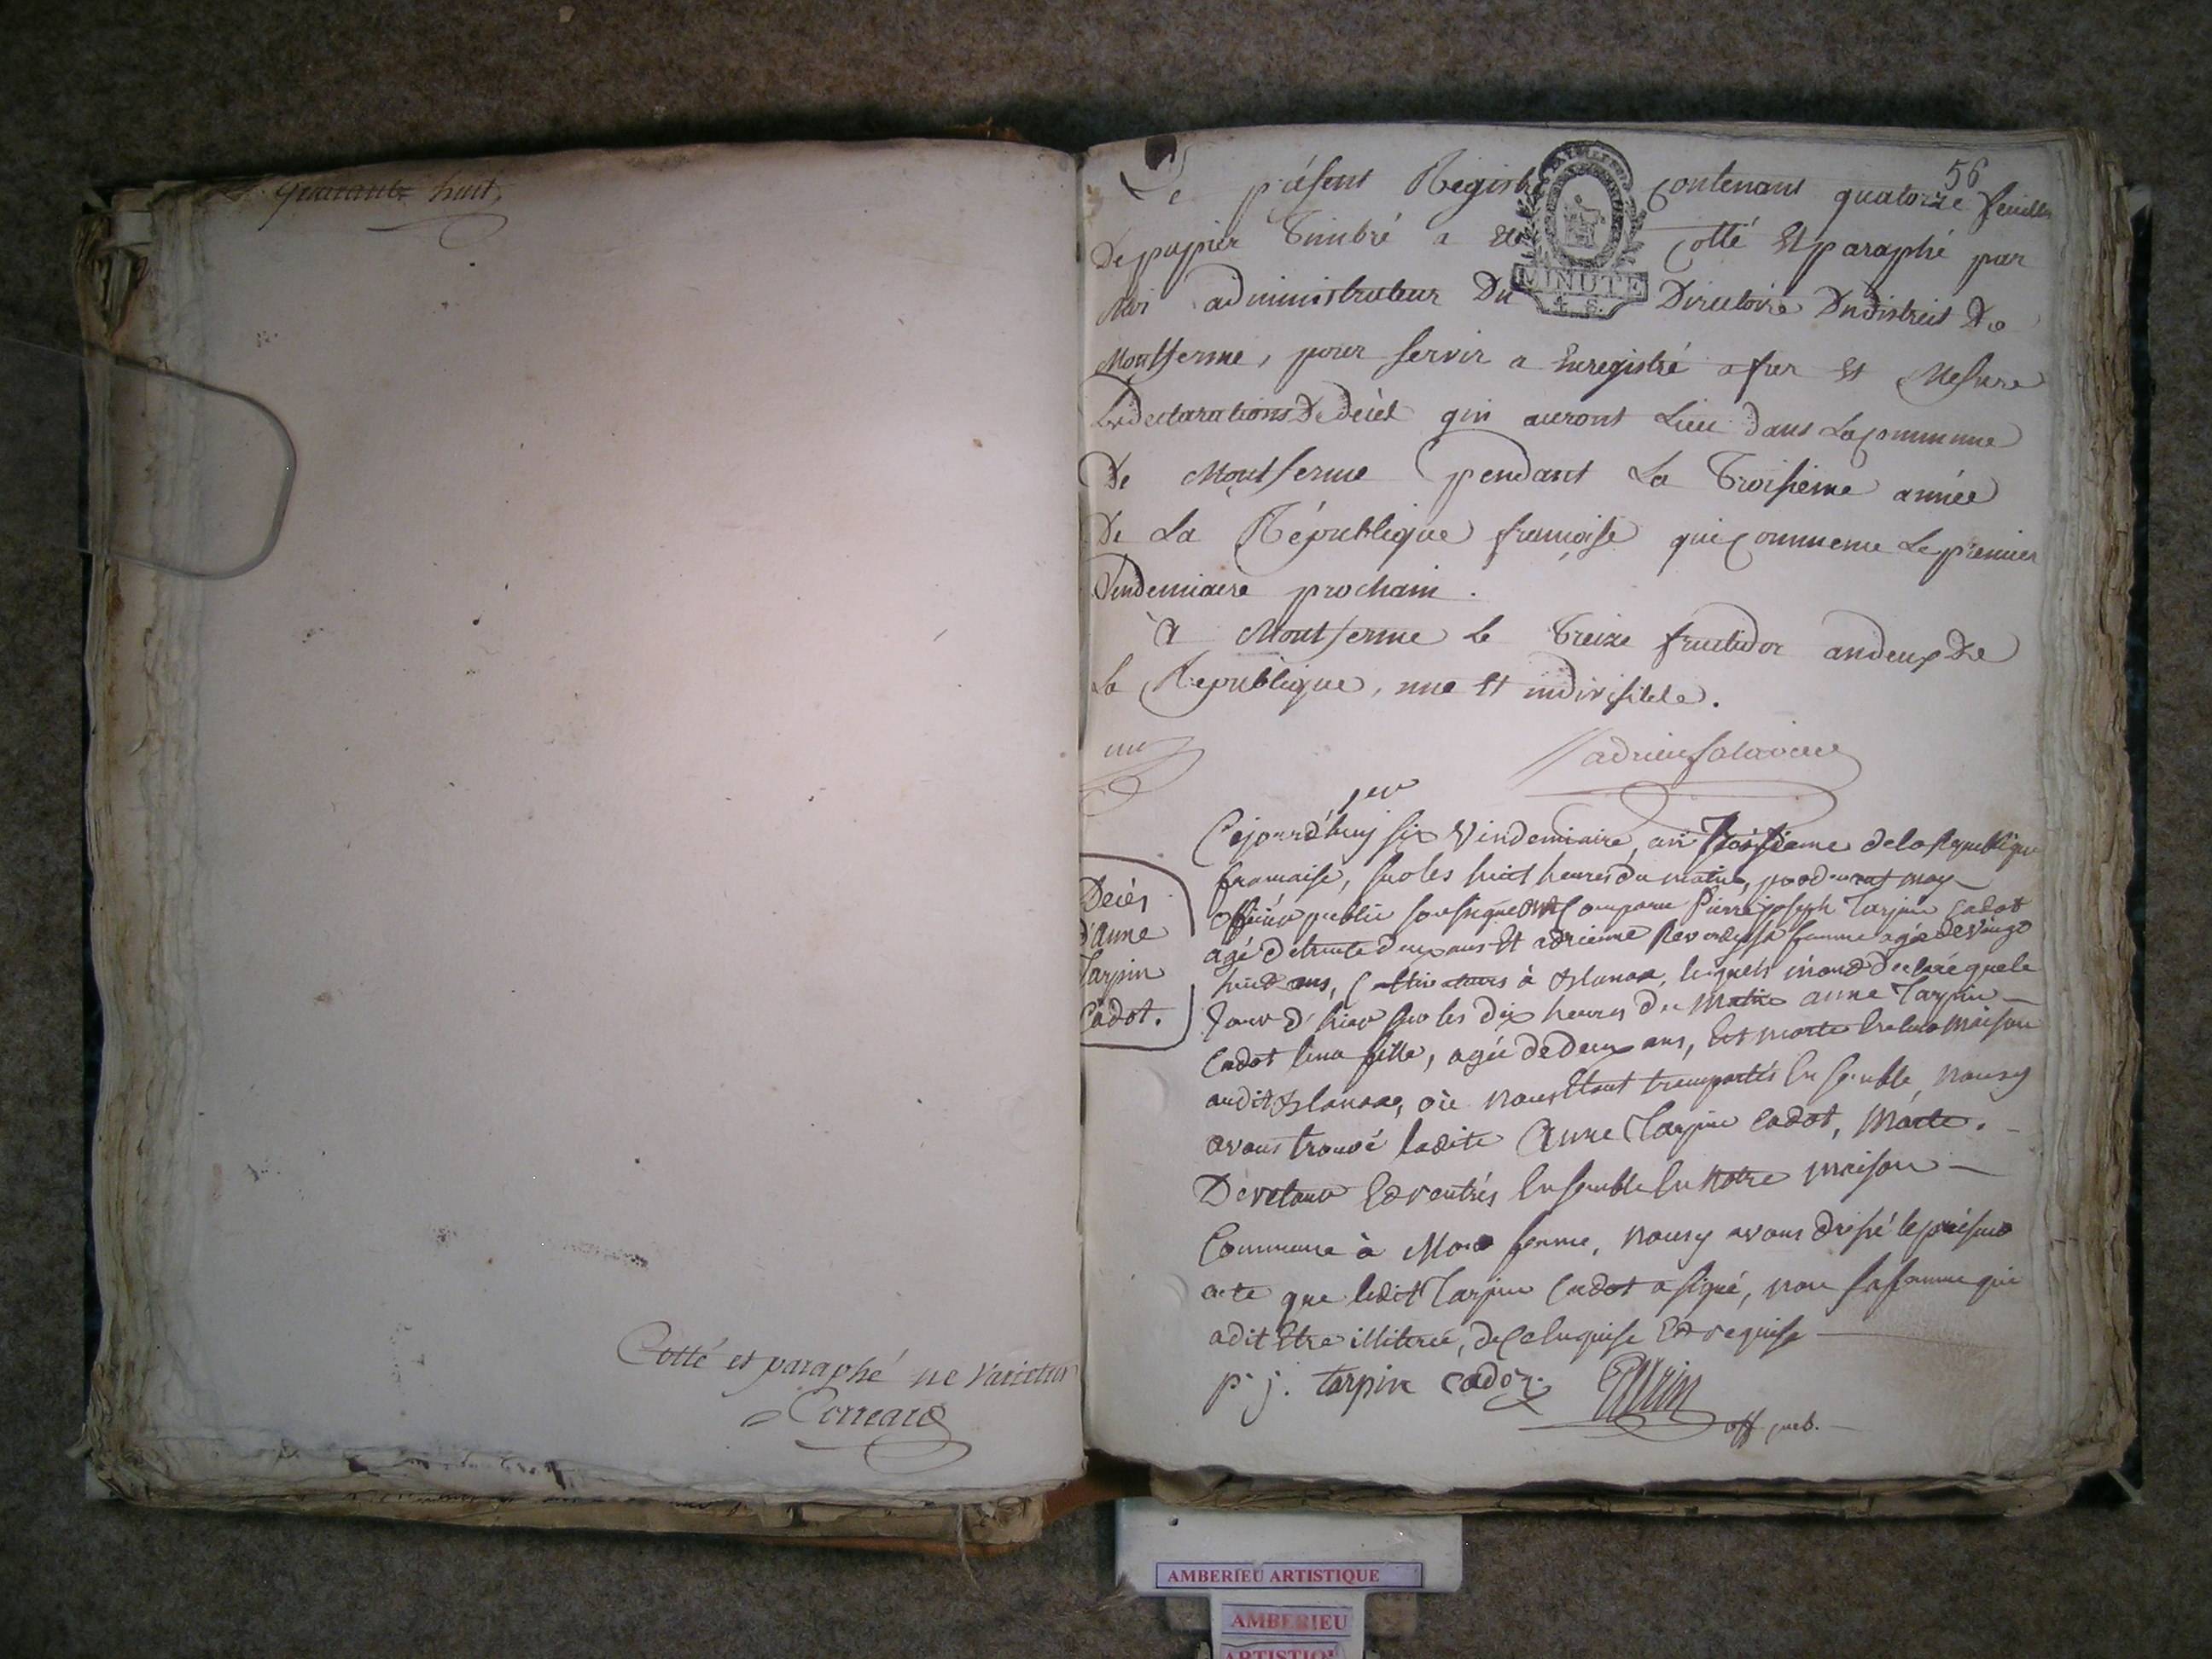 quarante huit
Cotté et paraphé ne varietur
Correard
56
Le présent Registre contenant quatorze feuilles
De papier Timbré a été Cotté Et paraphé par
Moi administrateur Du Directoire Du district De
Montferme, pour servir a Enregistré a fur Et Mesure
Les declarations De décès qui auront Lieu dans La commune
De Montferme pendant La Troisième année
De La République françoise qui Commence Le premier
Vendemiaire prochain.
à Montferme Le Treize fructidor an deux De
La République, une Et indivisible.
un
MINUTE
4. S.
1er
Cejourd'huy six Vendemiaire, an troisième de la République
francaise, sur les huit heures du matin, par devant moy
officier public soussigné ont Comparu Pierre joseph Tarpin Cadot
agé de trente deux ans Et adrienne sa femme agée de vingt
huit ans, Cultivateurs à lesquels m'ont déclaré que le
Jour d'hier sur les dix heures du Matin anne Tarpin
Cadot leur fille, agée de deux ans, Est morte En leur Maison
audit où nous Etant transportés Ensemble, nous y
avons trouvé ladite Anne Tarpin Cadot, Morte.
De retour Et rentrés Ensemble En Notre maison
Commune à Montferme, nous y avons dressé le présent
acte que ledit Tarpin Cadot a signé, non sa femme qui
a dit Etre illiterée, de Ce Enquise Et requise
Décès
d'Anne
Tarpin
Cadot.
p. j. tarpin cadoz
off. pub.
AMBERIEU ARTISTIQUE
AMBERIEU
ARTISTIQUE